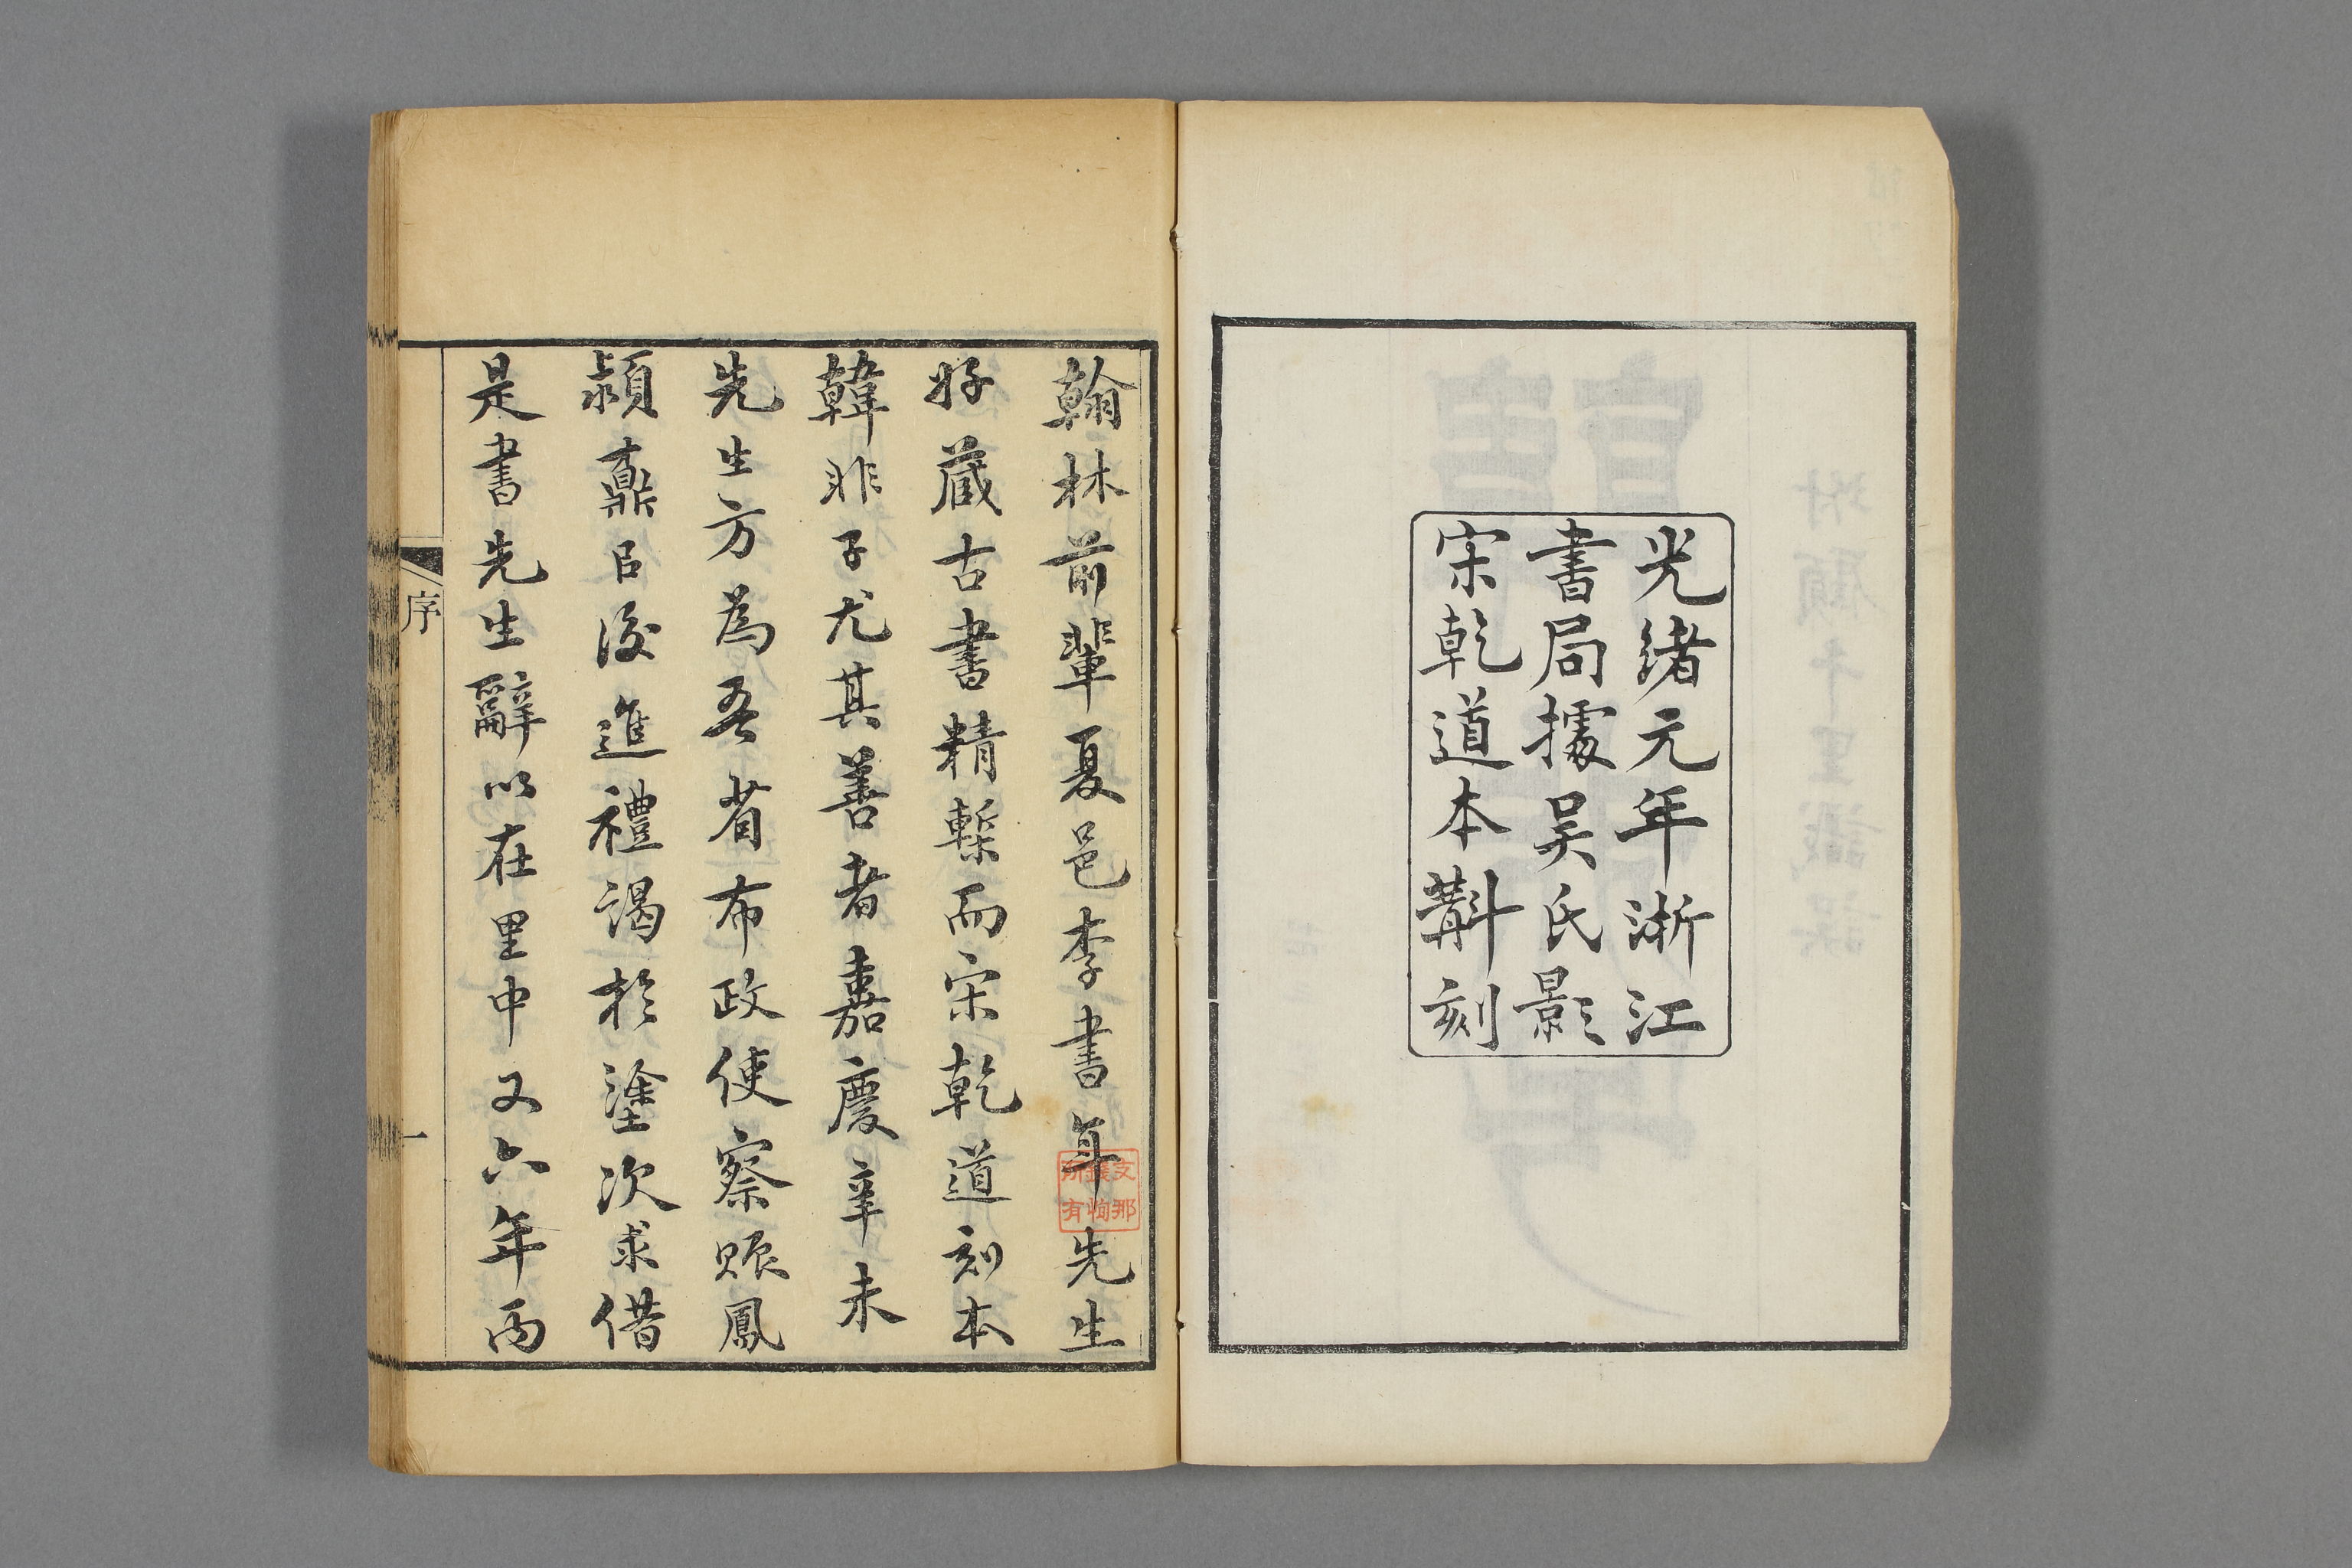 光緒元年浙江
書局據吳氏影
宋乾道本斠刻
翰林前輩夏邑李書年先生
好藏古書精槧而宋乾道刻本
韓非子尤其善者嘉慶辛未
先生方為吾省布政使察賑鳳
潁鼒臣後進禮謁於塗次求借
是書先生辭以在里中又六年丙
序
一